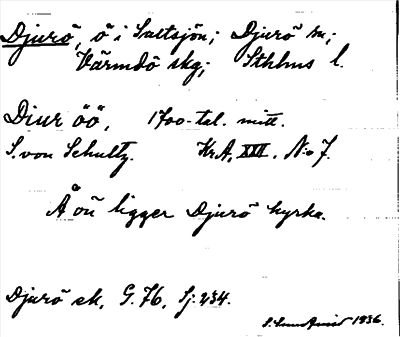 Djurö, ö i Saltsjön; Djurö sn;
Värmdö skg; Sthlms l.
Diur öö. 1700-tal. mitt.
S. von Schultz. KrA, XXII. No 7.
Å öñ ligger Djurö kyrka.
Djurö sk. G. 76, Sj: 234.
1936.